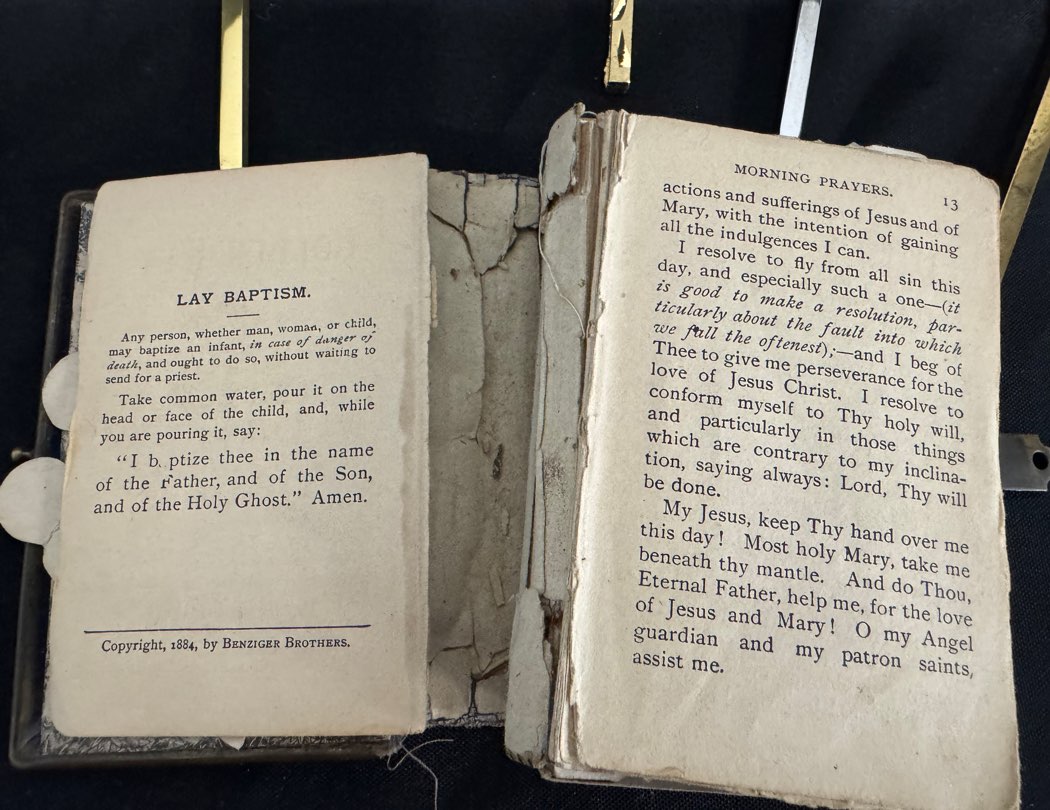 LAY BAPTISM.
Any person, whether man, woman, or child,
may baptize an infant, in case of danger of
death, and ought to do so, without waiting to
send for a priest.
Take common water, pour it on the
head or face of the child, and, while
you are pouring it, say:
"I b. ptize thee in the name
of the Father, and of the Son,
and of the Holy Ghost." Amen.
Copyright, 1884, by BENZIGER BROTHERS.
MORNING PRAYERS. 13
actions and sufferings of Jesus and of
Mary, with the intention of gaining
all the indulgences I can.
I resolve to fly from all sin this
day, and especially such a one—(it
is good to make a resolution, par-
ticularly about the fault into which
we fall the oftenest);—and I beg of
Thee to give me perseverance for the
love of Jesus Christ. I resolve to
conform myself to Thy holy will,
and particularly in those things
which are contrary to my inclina-
tion, saying always: Lord, Thy will
be done.
My Jesus, keep Thy hand over me
this day! Most holy Mary, take me
beneath thy mantle. And do Thou,
Eternal Father, help me, for the love
of Jesus and Mary! O my Angel
guardian and my patron saints,
assist me.